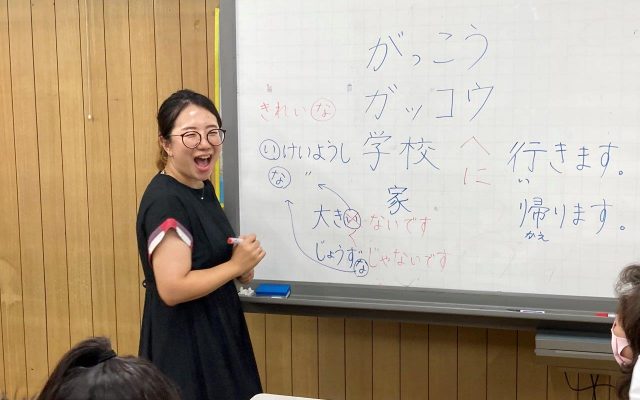 がっこう
ガッコウ
きれいな
いけいようし 学校 へ 行きます。
な 〃 に い
家 帰ります。
かえ
大きい くないです
じょうずな じゃないです